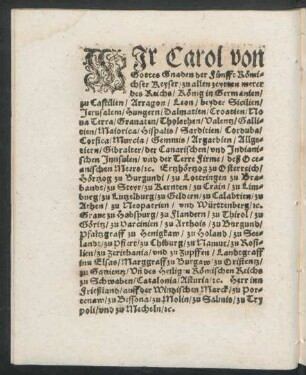 WIr Carol von
Gottes Gnaden der Fünfft Römi-
chster Keyser / zu allen zeyten merer
des Reichs / König in Germanien /
zu Castilien / Arragon / Leon / beyder Sicilien /
Jerusalem / Hungern / Dalmatien / Croatien / Na
ua Terra / Granaten / Tholeten / Valentz / Galli-
tien / Maiorica / Hispalis / Sardinien / Corduba /
Corsica / Murcia / Gennis / Argarbien / Allge-
ziern / Gibralter / der Canarischen / vnd Indiani-
schen Jnnsulen / vnd der Terre Firme / deß Oce-
anischen Meers / ꝛc. Ertzhörtzog zu Osterreich /
Hörtzog zu Burgundi / zu Lotteringen zu Bra-
bandt / zu Steyr / zu Kernten / zu Crain / zu Lim-
burg / zu Lutzelburg / zu Geldern / zu Calabrien / zu
Athen / zu Neopatrien / vnd Würtenberg / ꝛc.
Graue zu Habspurg / zu Flandern / zu Thirol / zu
Görtz / zu Barcinien / zu Arthois / zu Burgund /
Pfaltzgraff zu Henigkaw / zu Holand / zu See-
landt / zu Pfiert / zu Chiburg / zu Namur / zu Rosi-
lien / zu Zerithania / vnd zu Zupffen / Landtgraff
inn Elsas / Marggraff zu Burgaw / zu Oristentz /
zu Gauientz / Vñ des Heilig[e]n Römischen Reichs
zu Schwaben / Catalonia / Asturia / ꝛc. Herr inn
Frießland / auff der Windischen Marck / zu Por-
tenaw / zu Bissona / zu Molin / zu Salinis / zu Try
poli / vnd zu Mecheln / ꝛc.